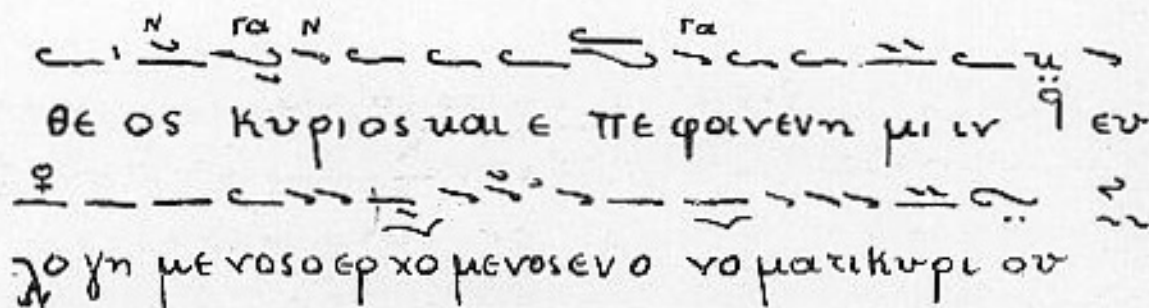 Ν γα Ν γα
θε ος κυριος και ε πε φανεν η μι ιν ϥ ευ
λο γη με νος ο ερχο με νος εν ο νο ματι κυρι ου